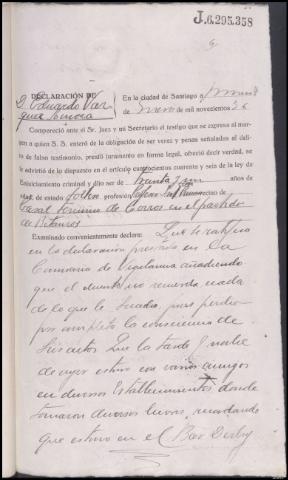 J.6.295.358
DECLARACIÓN DE
D. Eduardo
En la ciudad de Santiago a
de mil novecientos
Compareció ante el Sr. Juez y mi Secretario el testigo que se expresa al mar-
gen a quien S. S. enteró de la obligación de ser veraz y penas señaladas al deli-
to de falso testimonio, prestó juramento en forma legal, ofreció decir verdad, se
le advirtió de lo dispuesto en el artículo cuatrocientos cuarenta y seis de la ley de
Enjuiciamiento criminal y dijo ser de treinta y un años de
edad, de estado soltero profesión vecino de
en el partido
de Betanzos
Examinado convenientemente declara: Que se ratifica
en la declaración prestada en la
Comisaria de Vigilancia añadiendo
que el no recuerda nada
de lo que le pues perdió
por completo la consciencia de
sus actos. Que la tarde y noche
de ayer estuvo con varios amigos
en diversos Establecimientos donde
tomaron diversos licores, recordando
que estuvo en el Bar Derby